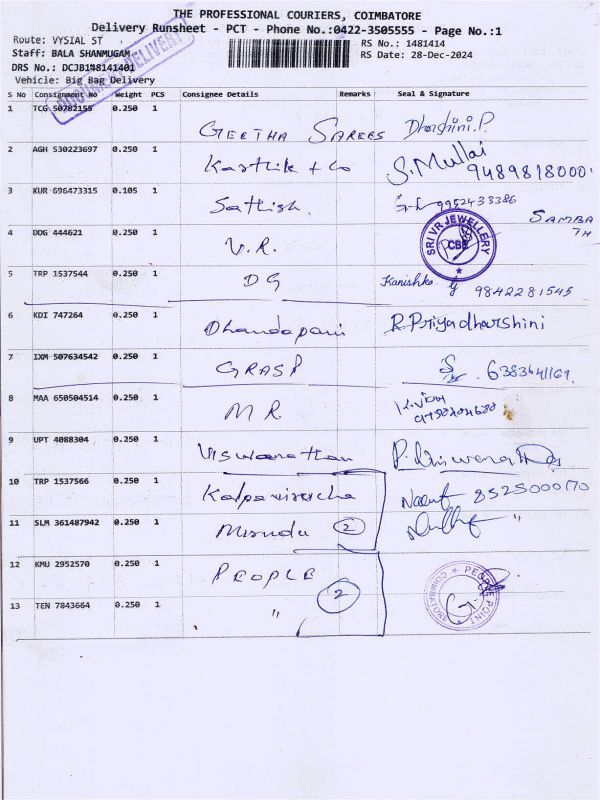 THE PROFESSIONAL COURIERS, COIMBATORE
Delivery Runsheet - PCT - Phone No.:0422-3505555 - Page No.:1
Route: VYSIAL ST
RS No.: 1481414
Staff: BALA SHANMUGAM
RS Date: 28-Dec-2024
DRS No.: DCJB148141401
Vehicle: Big Bag Delivery
DELIVERY
S No Consignment No Weight PCS Consignee Details Remarks Seal & Signature
1 TCG 50782155 0.250 1 GEETHA SAREES Dharshini.P.
2 AGH 530223697 0.250 1 Karthik + Co S. Mullai 9489818000
3 KUR 696473315 0.105 1 Sathish. 9952433386
4 DDG 444621 0.250 1 V.R. SRI VR JEWELLERY CBE SAMBA
5 TRP 1537544 0.250 1 DG Kanishka 9842281545
6 KDI 747264 0.250 1 Dhandapani R.Priyadharshini
7 IXM 507634542 0.250 1 GRASP 6383641169.
8 MAA 650504514 0.250 1 MR
9 UPT 4088304 0.250 1 Viswanathan
10 TRP 1537566 0.250 1 8525000170
11 SLM 361487942 0.250 1 2 "
12 KMU 2952570 0.250 1 PEOPLE PEOPLE POINT COIMBATORE
2
13 TEN 7843664 0.250 1 "